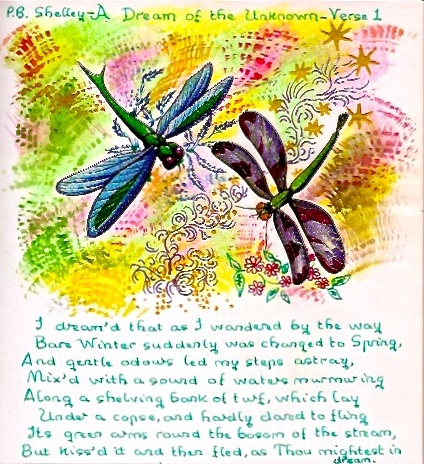 P.B. Shelley-A Dream of the Unknown-Verse 1
I dream'd that as I wandered by the way
Bare Winter suddenly was changed to Spring,
And gentle odours led my steps astray,
Mix'd with a sound of waters murmuring
Along a shelving bank of turf, which lay
Under a copse, and hardly dared to fling
Its green arms round the bosom of the stream,
But kiss'd it and then fled, as Thou mightest in
dream.